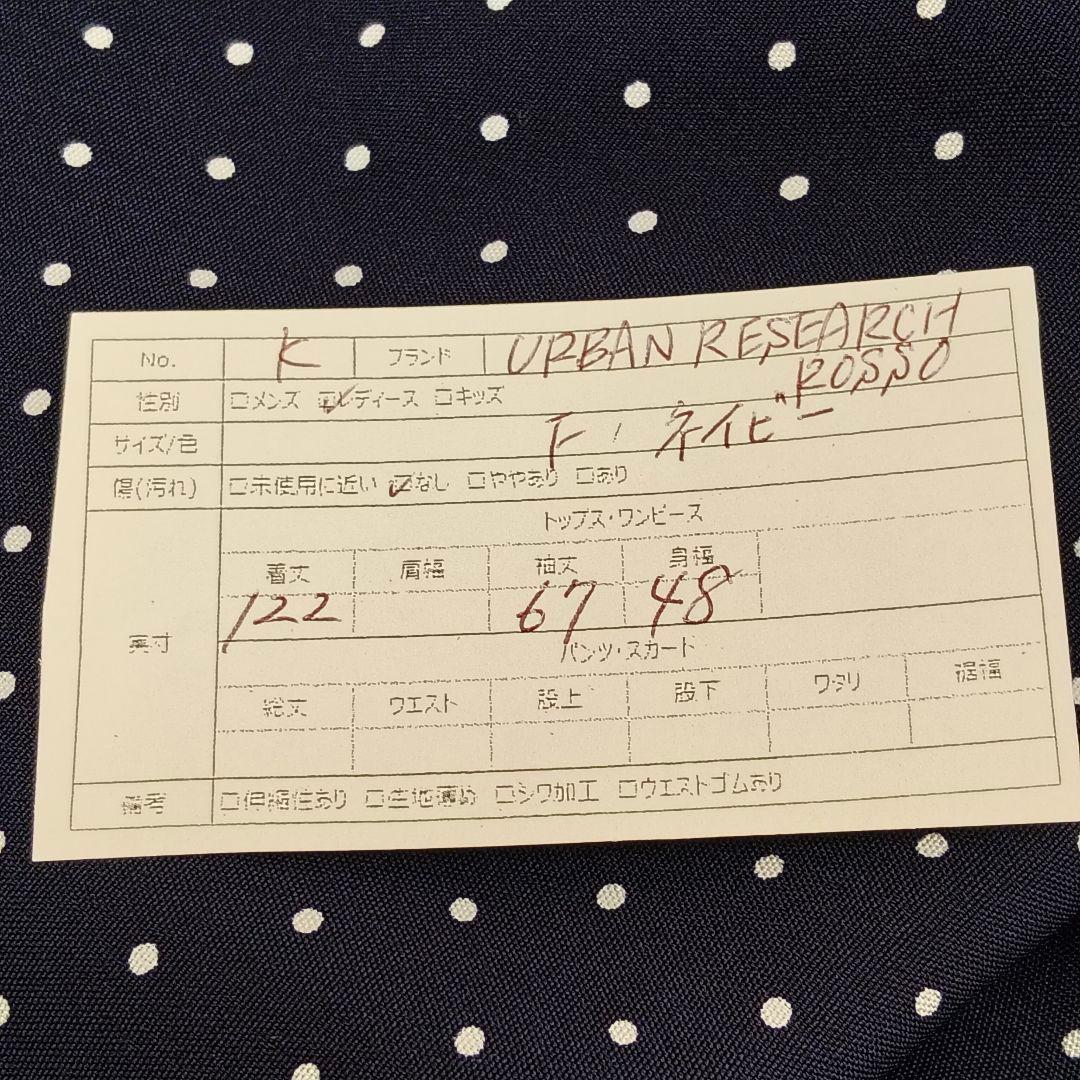 No. K ブランド URBAN RESEARCH
ROSSO
性別 □メンズ ☑レディース □キッズ
サイズ/色 F / ネイビー
傷(汚れ) □未使用に近い ☑なし □ややあり □あり
トップス・ワンピース
着丈 肩幅 袖丈 身幅
122 67 48
実寸
パンツ・スカート
総丈 ウエスト 股上 股下 ワタリ 裾幅
備考 □伸縮性あり □生地薄め □シワ加工 □ウエストゴムあり